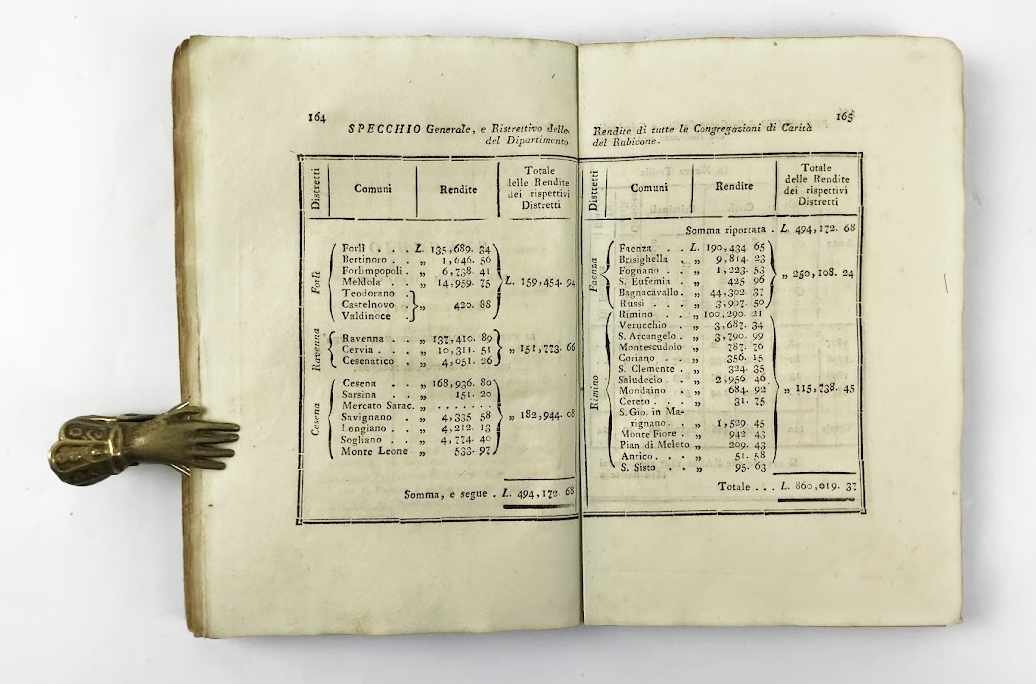 164
SPECCHIO Generale, e Ristrettivo delle
del Dipartimento
Distretti Comuni Rendite Totale
delle Rendite
dei rispettivi
Distretti
Forlì
Forlì . . . L. 135,689. 34
Bertinoro . . „ 1,646. 56
Forlimpopoli . „ 6,738. 41
Meldola . . „ 14,959. 75 L. 159,454. 94
Teodorano .
Castelnovo . „ 420. 88
Valdinoce .
Ravenna
Ravenna . . „ 137,410. 89
Cervia . . . „ 10,311. 51 „ 151,773. 66
Cesenatico . „ 4,051. 26
Cesena
Cesena . . „ 168,936. 80
Sarsina . . „ 151. 20
Mercato Sarac. „ . . . . . . . .
Savignano . „ 4,335 58 „ 182,944. 08
Longiano . . „ 4,212. 13
Sogliano . . „ 4,774. 40
Monte Leone „ 533. 97
Somma, e segue . L. 494,172. 68
165
Rendite di tutte le Congregazioni di Carità
del Rubicone.
Distretti Comuni Rendite Totale
delle Rendite
dei rispettivi
Distretti
Somma riportata . L. 494,172. 68
Faenza
Faenza . . L. 190,434 65
Brisighella . „ 9,814. 23
Fognano . . „ 1,223. 53
S. Eufemia . „ 425 96 „ 250,108. 24
Bagnacavallo . „ 44,302. 37
Russi . . . „ 3,907. 50
Rimino
Rimino . . „ 100,290. 21
Verucchio . „ 3,687. 34
S. Arcangelo . „ 3,790. 99
Montescudolo „ 787. 76
Coriano . . . „ 356. 15
S. Clemente . „ 324. 35
Saludecio . . „ 2,956. 46
Mondaino . „ 684. 92 „ 115,738. 45
Cereto . . „ 31. 75
S. Gio. in Ma-
rignano . . „ 1,529. 45
Monte Fiore . „ 942. 43
Pian di Meleto „ 209. 43
Antico . . . „ 51. 58
S. Sisto . . „ 95. 63
Totale . . . L. 860,019. 37